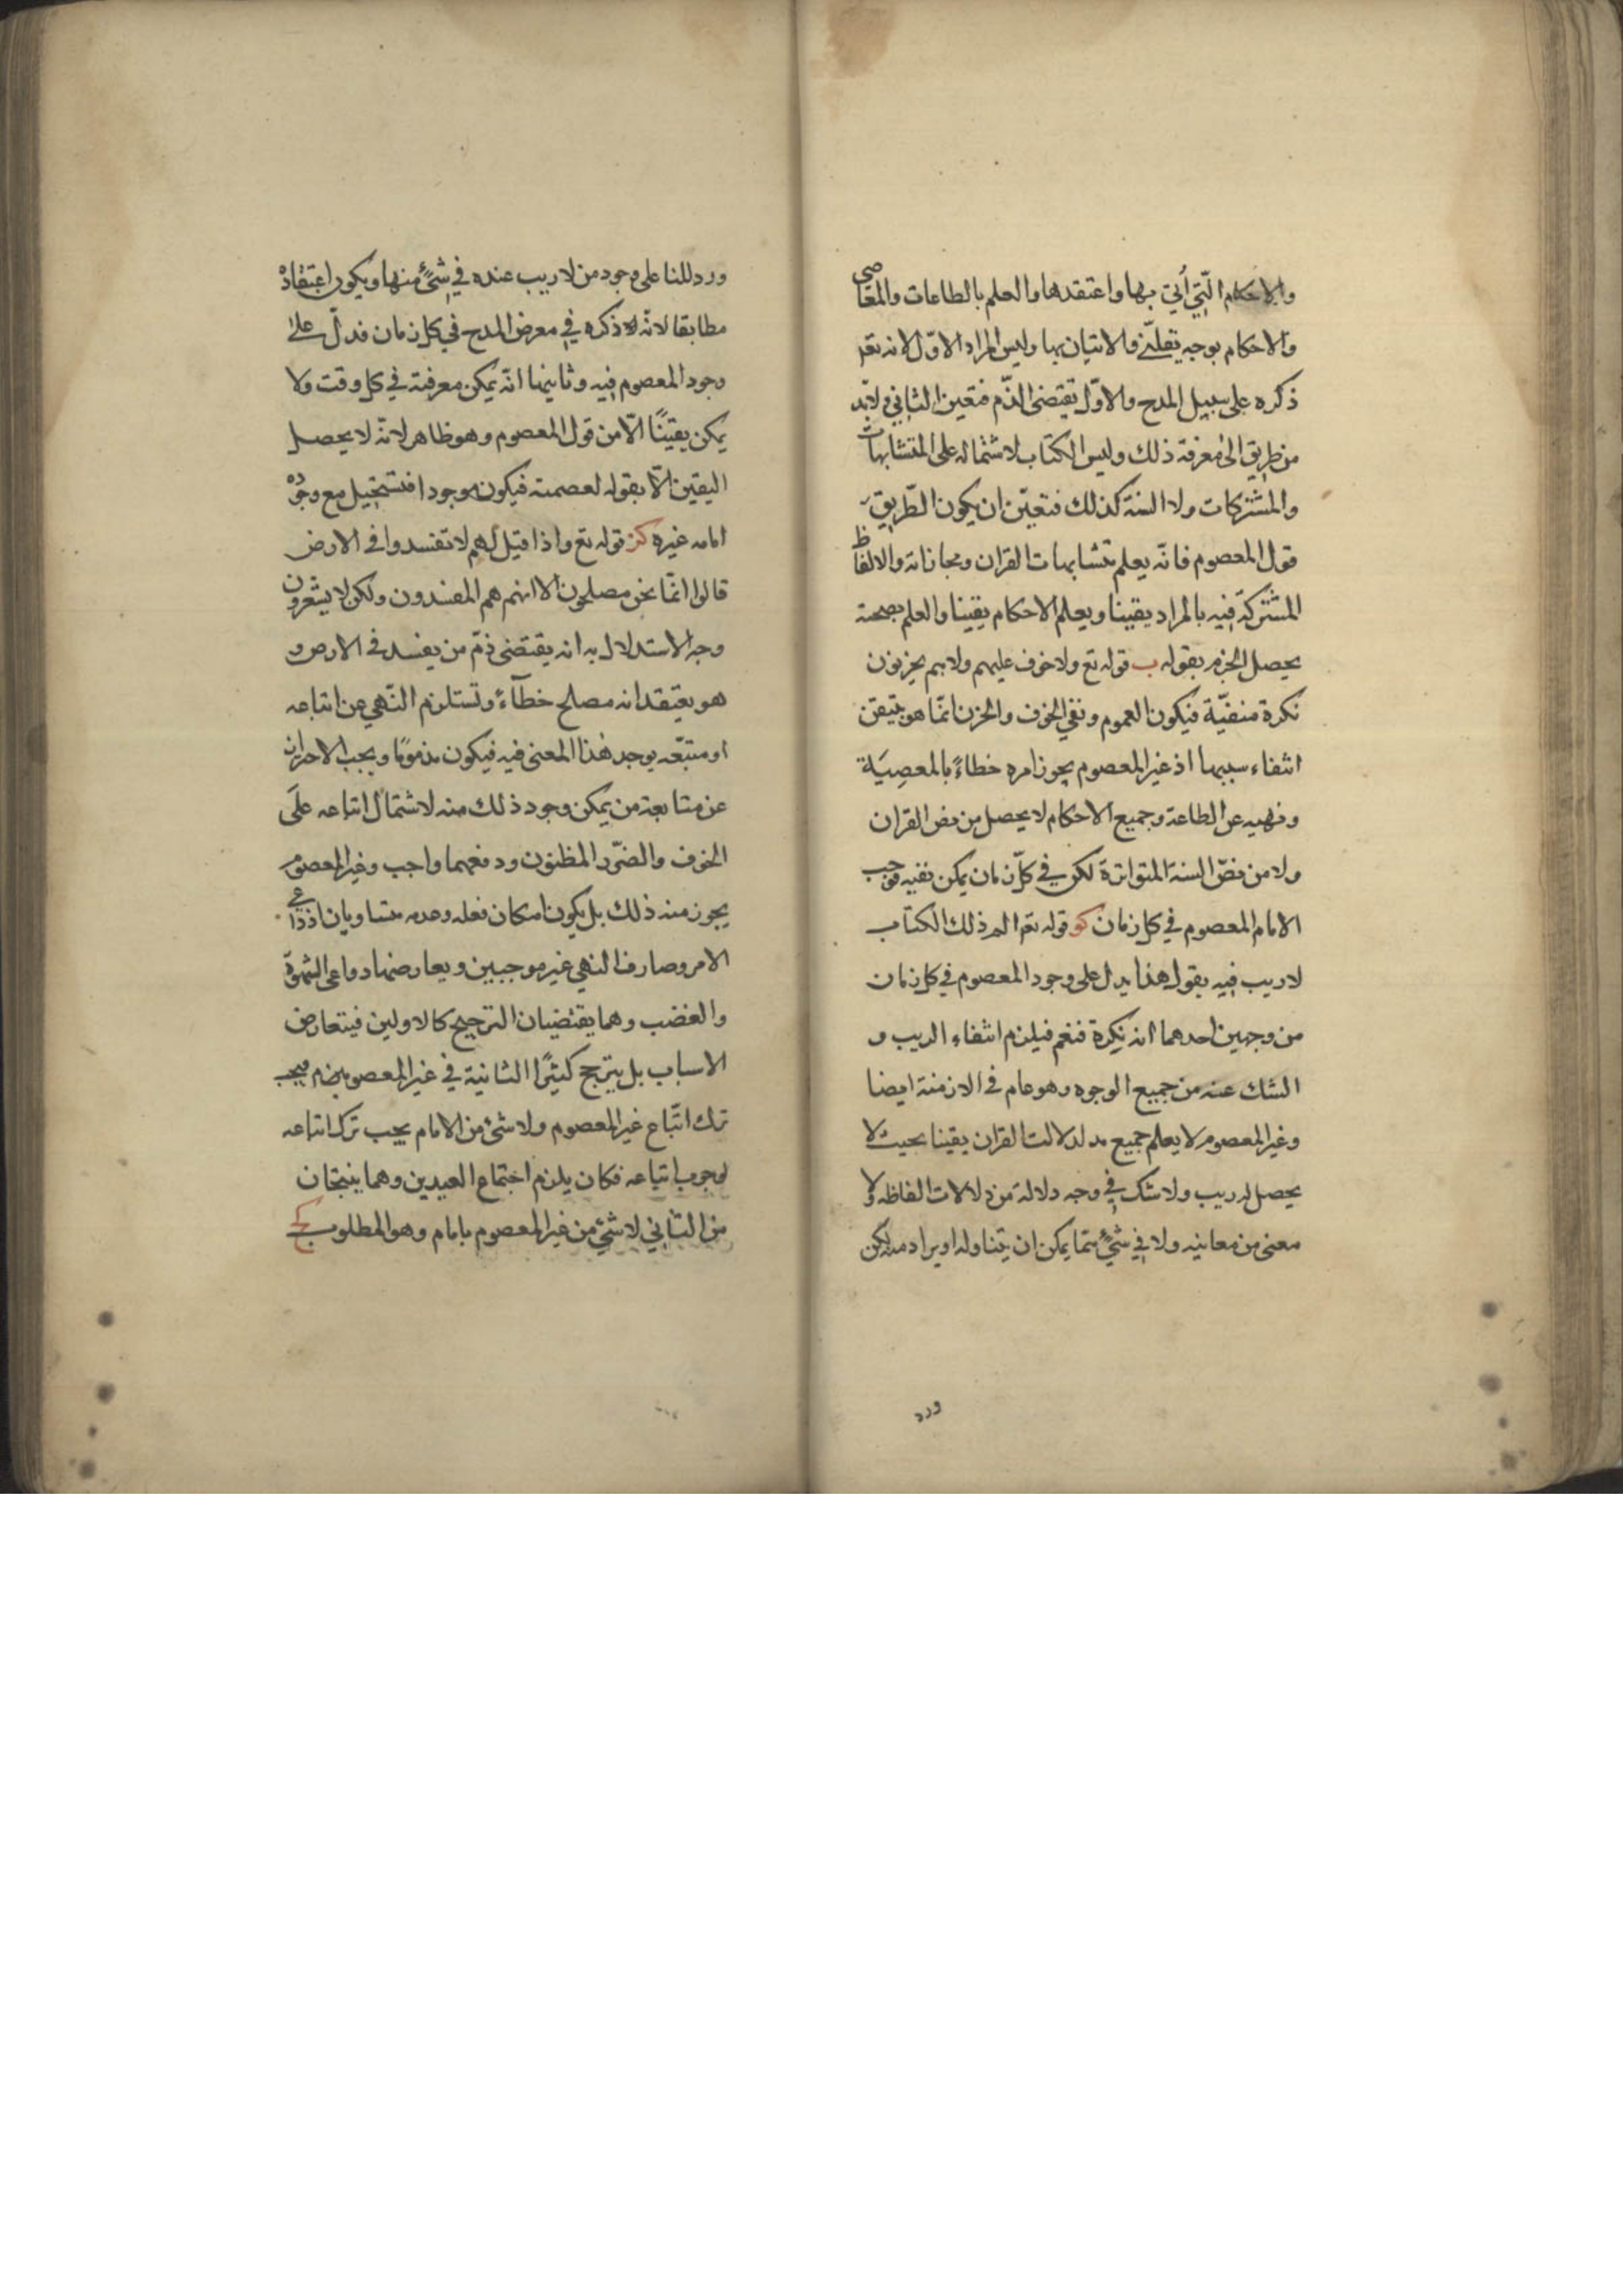 والاحكام الّتي أتي بها واعتقدها والعلم بالطاعات والمعاصي
والاحكام بوجه يقيني والاتيان بها وليس المراد الاوّل لانه تعم
ذكره على سبيل المدح والاوّل يقتضى الذّم فتعين الثاني ولابّد
من طريق الى معرفة ذلك وليس الكتاب لاشتماله على المتشابهات
والمشتركات ولا السنة كذلك فتعيّن ان يكون الطّريق
قول المعصوم فانّه يعلم متشابهات القران ومجازاته والالفاظ
المشتركة فيه بالمراد يقينا ويعلم الاحكام يقينا والعلم بصحته
يحصل الجزم بقوله ب قوله تع ولا خوف عليهم ولا هم يحزنون
نكرة منفيّة فيكون العموم ونفي الخوف والحزن انمّا هو بتيقن
انتفاء سببهما اذ غير المعصوم يجوز امره خطاءً بالمعصِيَة
ونهيه عن الطاعة وجميع الاحكام لا يحصل من نص القران
ولا من نصّ السنة المتواترة لكن في كلّ زمان يمكن نفيه فوجب
الامام المعصوم في كل زمان كو قوله تعم الم ذلك الكتاب
لا ريب فيه بقول هذا يدل على وجود المعصوم في كل زمان
من وجهين احدهما انه نكرة فنعم فيلزم انتفاء الريب و
الشك عنه من جميع الوجوه وهو عام في الازمنة ايضا
وغير المعصوم لا يعلم جميع مدلدلالت القران يقينا بحيث لا
يحصل له ريب ولا شك في وجه دلالة من دلالات الفاظه ولا
معنى من معانيه ولا في شئٍ ممّا يمكن ان يتناوله او يراد منه لكن
ورد
ورد للنا على وجود من لا ريب عنده في شئٍ منها ويكون اعتقاده
مطابقا لانّه ذكره في معرض المدح في كل زمان فدلّ على
وجود المعصوم فيه وثانيهما انّه يمكن معرفته في كل وقت ولا
يمكن يقينًا الّا من قول المعصوم وهو ظاهر لانّه لا يحصل
اليقين الّا بقوله لعصمته فيكون موجودا فتستحيل مع وجوده
امامه غيره كز قوله تع واذا قيل لهم لا تفسدوا في الارض
قالوا انمّا نحن مصلحون الا انهم هم المفسدون ولكن لا يشعرون
وجه الاستدلال به انه يقتضى ذمّ من يفسد في الارض و
هو يعتقد انه مصلح خطآءً وتستلزم النّهي عن اتباعه
او متبعّه يوجد هذا المعنى فيه فيكون مذمومًا ويجب الاحتراز
عن متابعة من يمكن وجود ذلك منه لاشتمال اتباعه علَى
الخوف والضّرر المظنون ودفعهما واجب وغير المعصوم
يجوز منه ذلك بل يكون امكان فعله وعدمه متساويان اذ دواعي
الامر وصارف النهي غير موجبين ويعارضهما دواعى الشهوّة
والغضب وهما يقتضيان الترجيح كالاولين فيتعارض
الاسباب بل يترجح كثيرًا الثانية في غير المعصومين فيجب
ترك اتّباع غير المعصوم ولا شئ من الامام يجب ترك اتباعه
لوجوب اتباعه فكان يلزم اجتماع الضدين وهما ينتجان
من الثاني لا شئ من غير المعصوم بامام وهو المطلوب كح